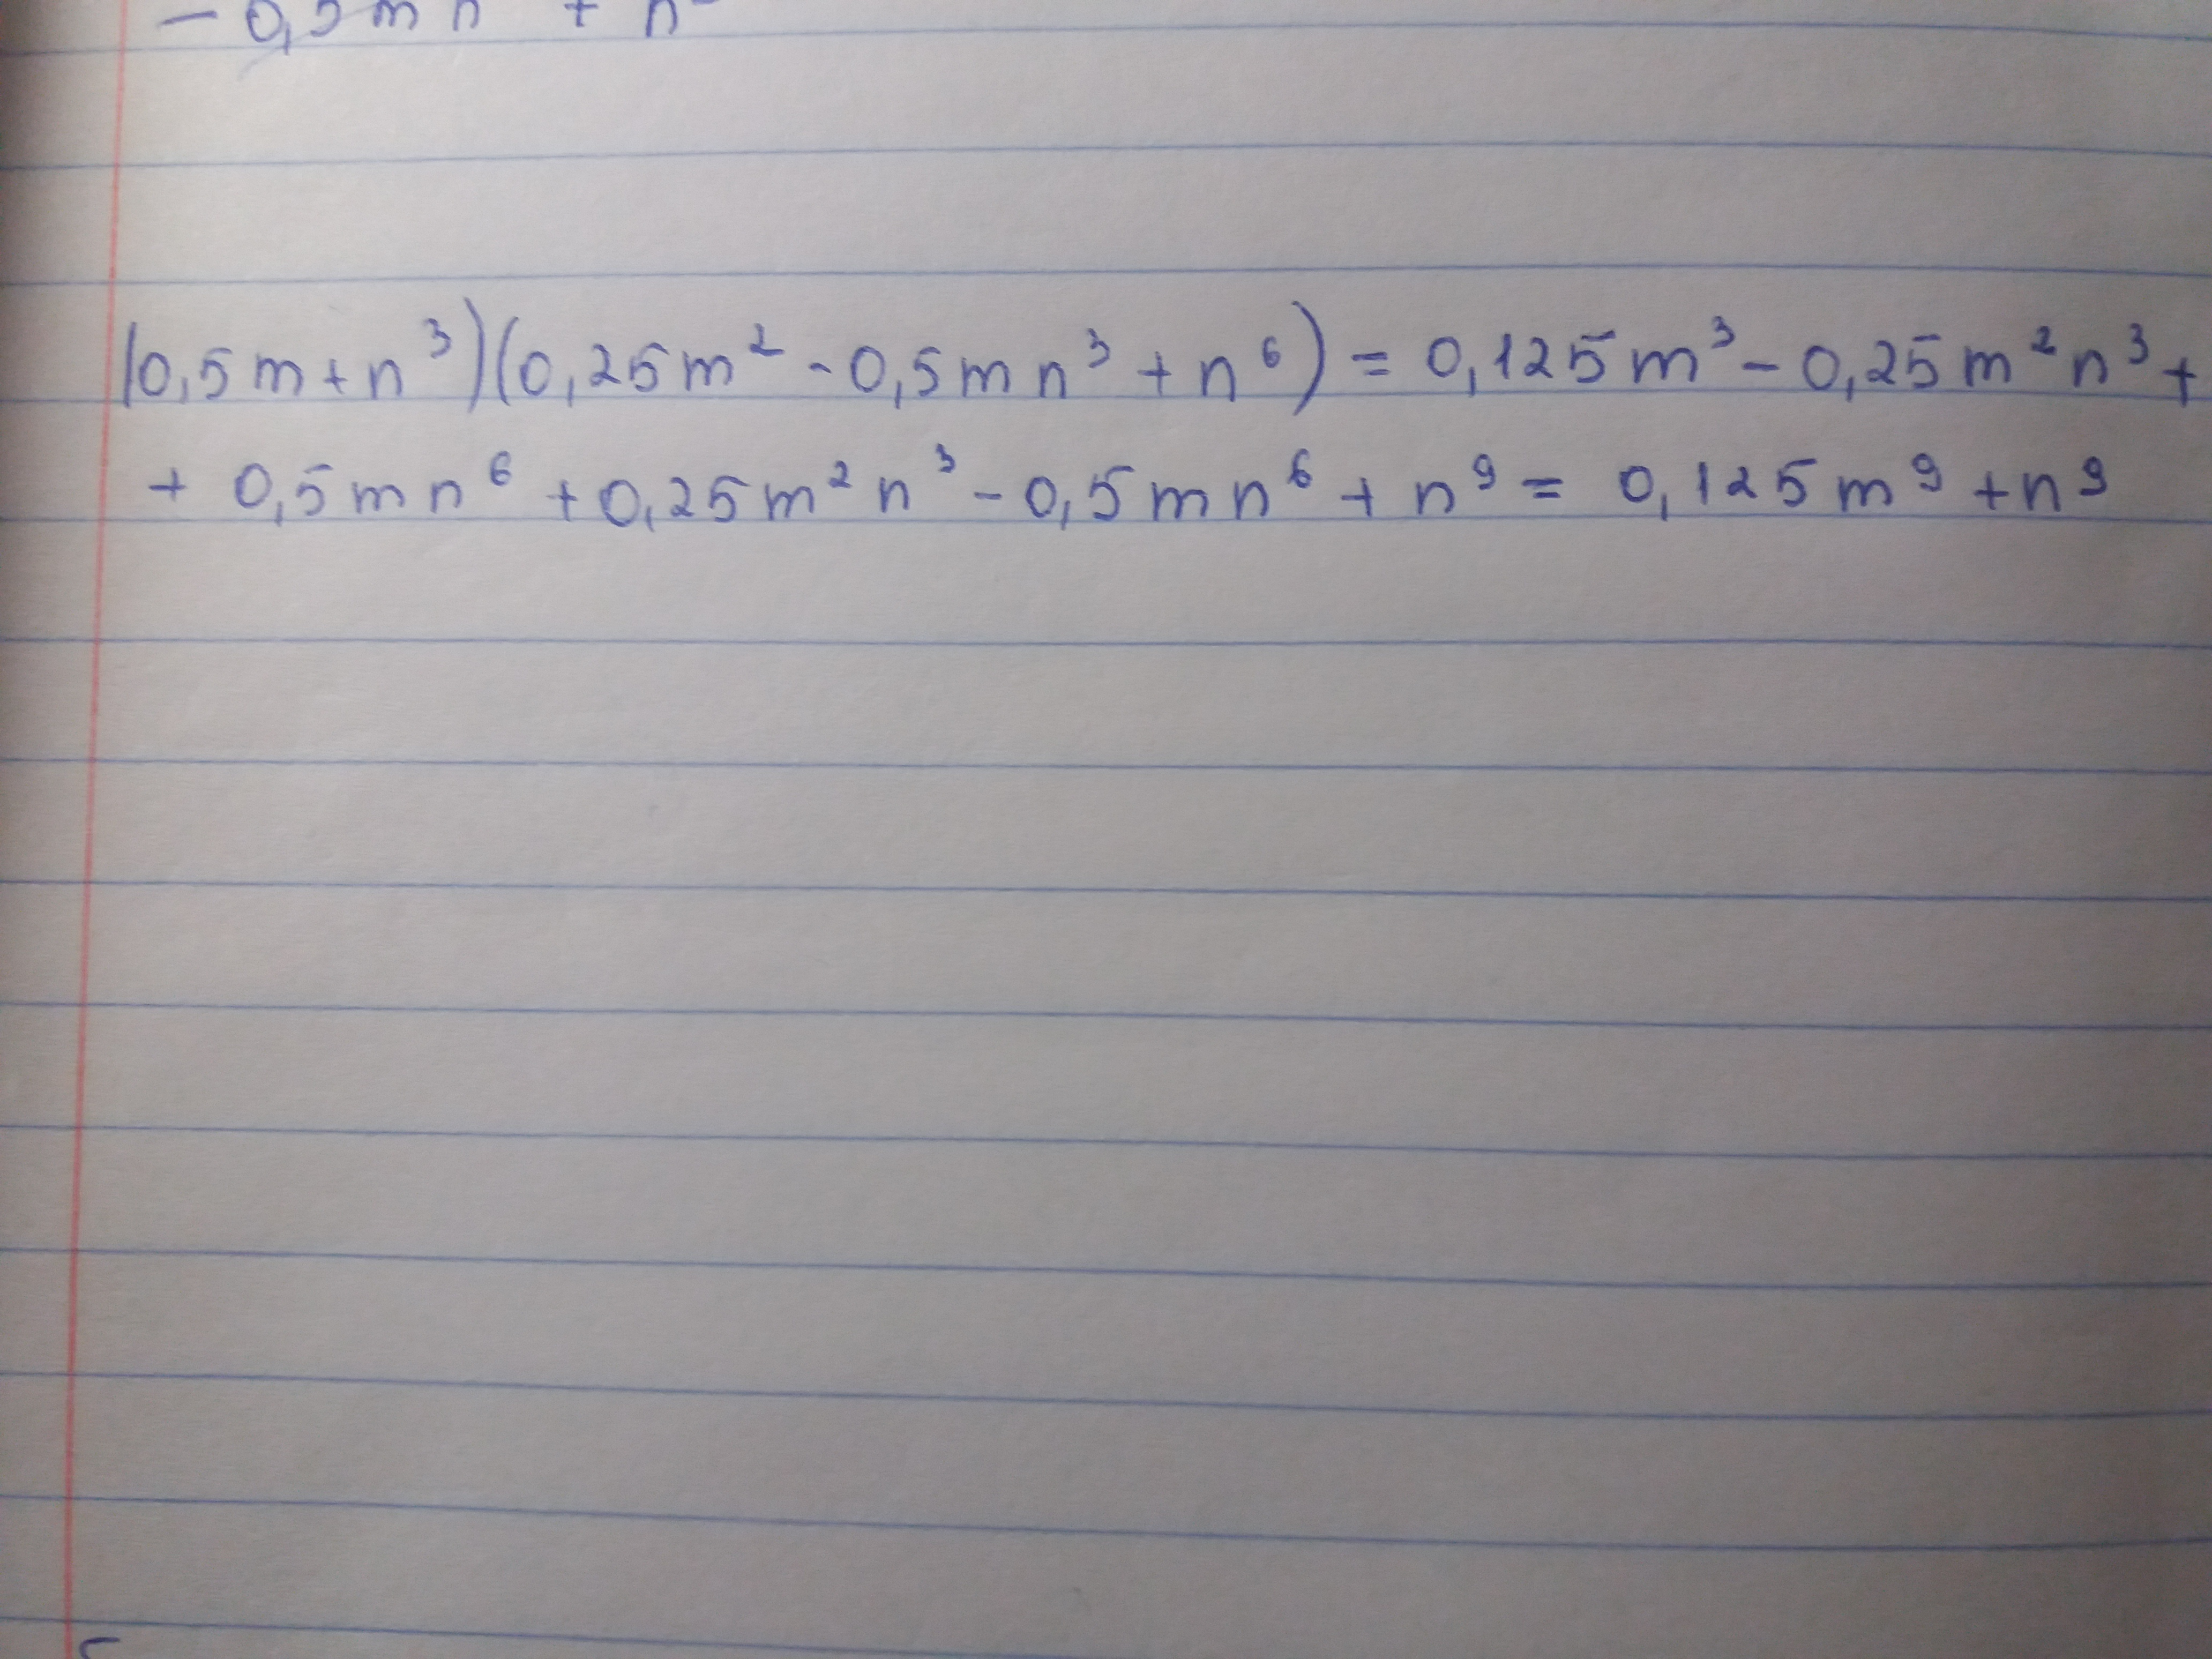 - 0,5 m n + n
(0,5m+n³)(0,25m²-0,5mn³+n⁶)=0,125m³-0,25m²n³+
+0,5mn⁶+0,25m²n³-0,5mn⁶+n⁹=0,125m⁹+n⁹